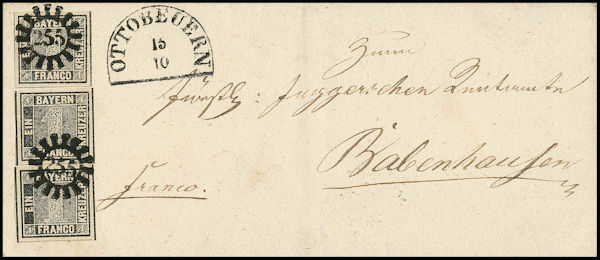 BAYERN
255
KREUZER
FRANCO
EIN
BAYERN
KREUZER
FRANCO
EIN
BAYERN
KREUZER
FRANCO
OTTOBEUERN
15
10
Zum
fürstl: Fuggerischen Rentamte
Babenhausen
franco.